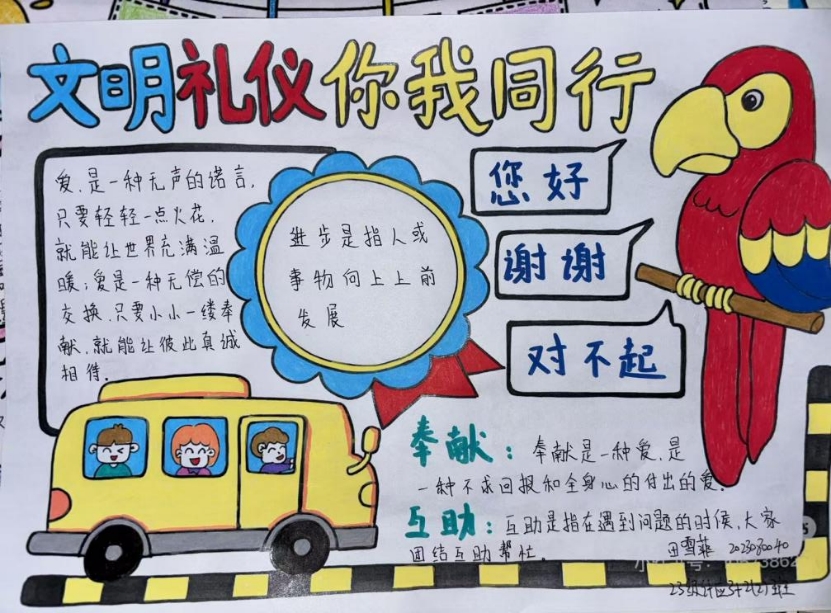 文明礼仪你我同行
爱,是一种无声的诺言,
只要轻轻一点火花,
就能让世界充满温
暖;爱是一种无偿的
交换,只要小小一缕奉
献,就能让彼此真诚
相待.
进步是指人或
事物向上上前
发展
您好
谢谢
对不起
奉献:奉献是一种爱,是
一种不求回报和全身心的付出的爱.
互助:互助是指在遇到问题的时候,大家
团结互助帮忙.